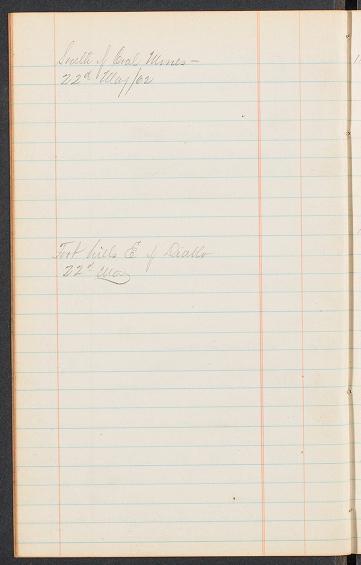 South of Coal Mines –
22d May/62
Foot hills E of Diablo
22d May